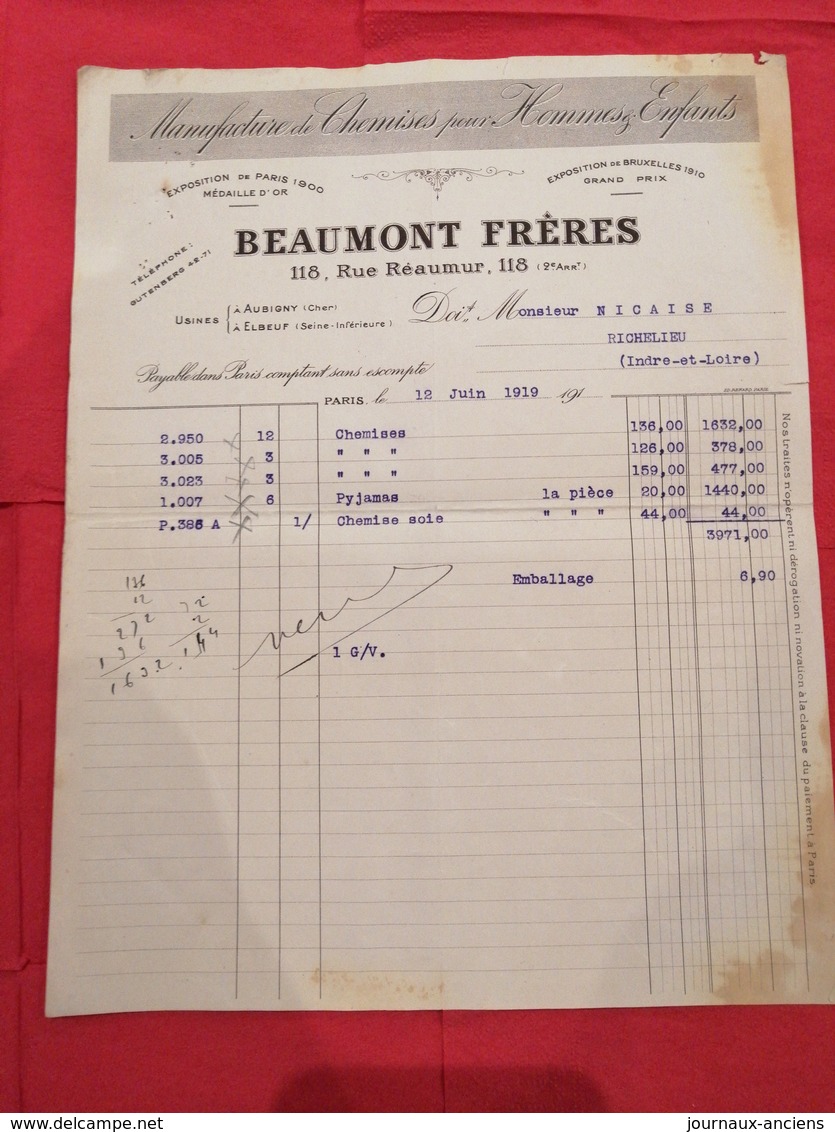 Manufacture de Chemises pour Hommes & Enfants
EXPOSITION DE PARIS 1900
MÉDAILLE D'OR
EXPOSITION DE BRUXELLES 1910
GRAND PRIX
BEAUMONT FRÈRES
118, Rue Réaumur, 118 (2e ARRT)
TÉLÉPHONE:
GUTENBERG 42-71
USINES
À AUBIGNY (Cher)
À ELBEUF (Seine-Inférieure)
Doit Monsieur NICAISE
RICHELIEU
(Indre-et-Loire)
Payable dans Paris comptant sans escompte
PARIS, le 12 Juin 1919 191
2.950 12 Chemises 136,00 1632,00
3.005 3 " " " 126,00 378,00
3.023 3 " " " 159,00 477,00
1.007 6 Pyjamas la pièce 20,00 1440,00
P.386 A 1/ Chemise soie " " " 44,00 44,00
3971,00
Emballage 6,90
1 G/V.
136
12
272
136
1632
72
2
144
Nos traites n'opèrent ni dérogation ni novation à la clause du paiement à Paris
delcampe.net
journaux-anciens